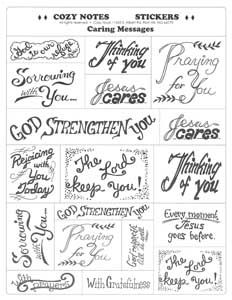 COZY NOTES STICKERS
Caring Messages
God is our refuge
Thinking
of you
Praying
for
You
Sorrowing
with
You...
Jesus
cares.
GOD STRENGTHEN you
Jesus
Cares.
Rejoicing
with
You
Today
The Lord
keep You!
Thinking
of you
GOD STRENGTHEN you
Every moment,
Jesus
goes before.
Sorrowing
with
You...
Praying
for
You
With Gratefulness
The
Lord
keep You!